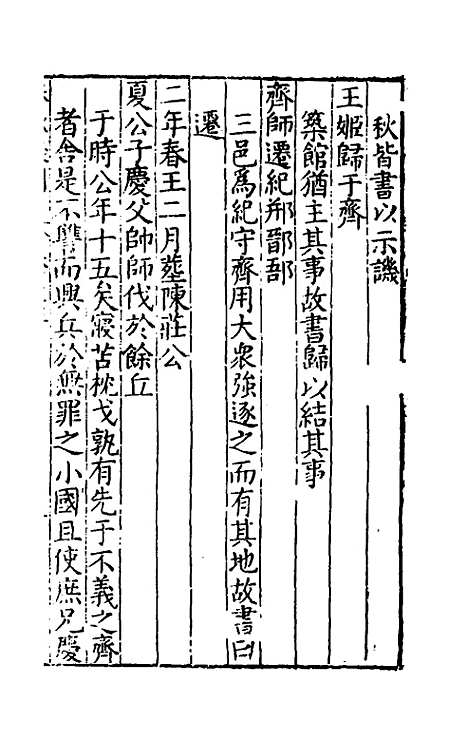 秋皆書以示譏
王姬歸于齊
築館猶主其事故書歸以結其事
齊師遷紀郱鄑郚
三邑為紀守齊用大衆強逐之而有其地故書曰
遷
二年春王二月塟陳莊公
夏公子慶父帥師伐於餘丘
于時公年十五矣寢苫枕戈孰有先于不義之齊
者舍是不讐而興兵於無罪之小國且使庶兄慶